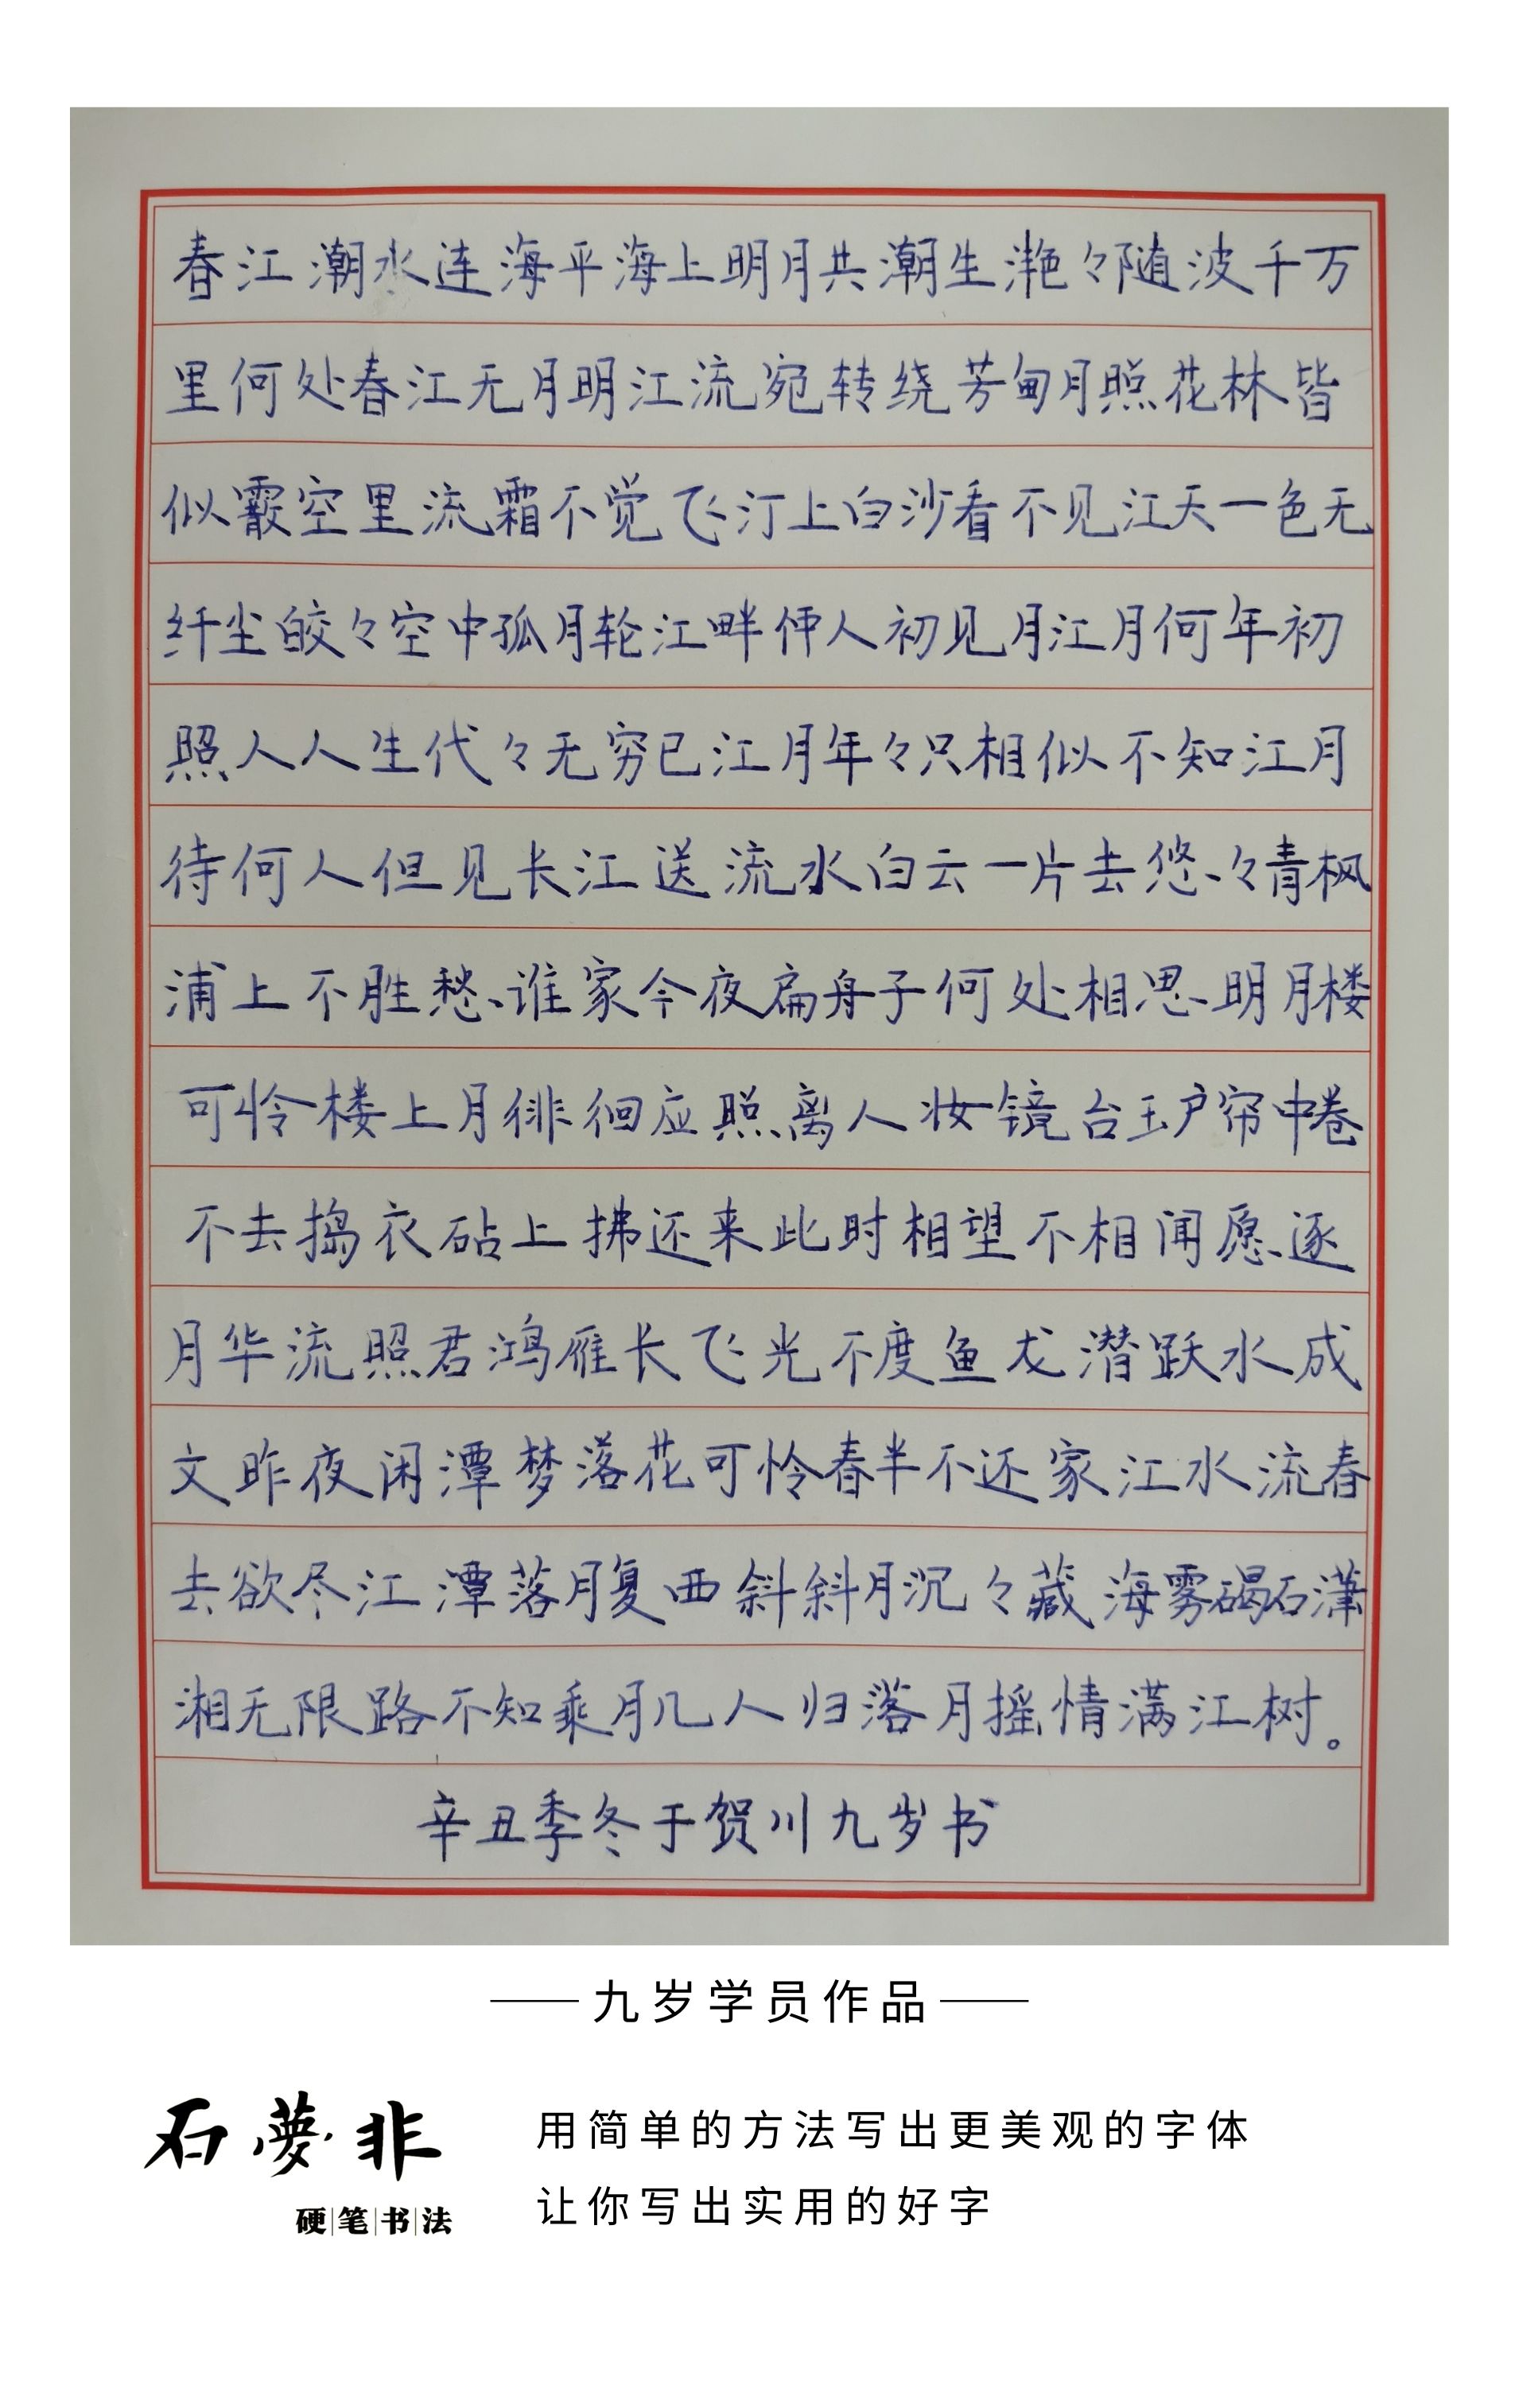 春江潮水连海平海上明月共潮生滟々随波千万
里何处春江无月明江流宛转绕芳甸月照花林皆
似霰空里流霜不觉飞汀上白沙看不见江天一色无
纤尘皎々空中孤月轮江畔何人初见月江月何年初
照人人生代々无穷已江月年々只相似不知江月
待何人但见长江送流水白云一片去悠々青枫
浦上不胜愁谁家今夜扁舟子何处相思明月楼
可怜楼上月徘徊应照离人妆镜台玉户帘中卷
不去捣衣砧上拂还来此时相望不相闻愿逐
月华流照君鸿雁长飞光不度鱼龙潜跃水成
文昨夜闲潭梦落花可怜春半不还家江水流春
去欲尽江潭落月复西斜斜月沉々藏海雾碣石潇
湘无限路不知乘月几人归落月摇情满江树。
辛丑季冬于贺川九岁书
九岁学员作品
石夢非
硬笔书法
用简单的方法写出更美观的字体
让你写出实用的好字